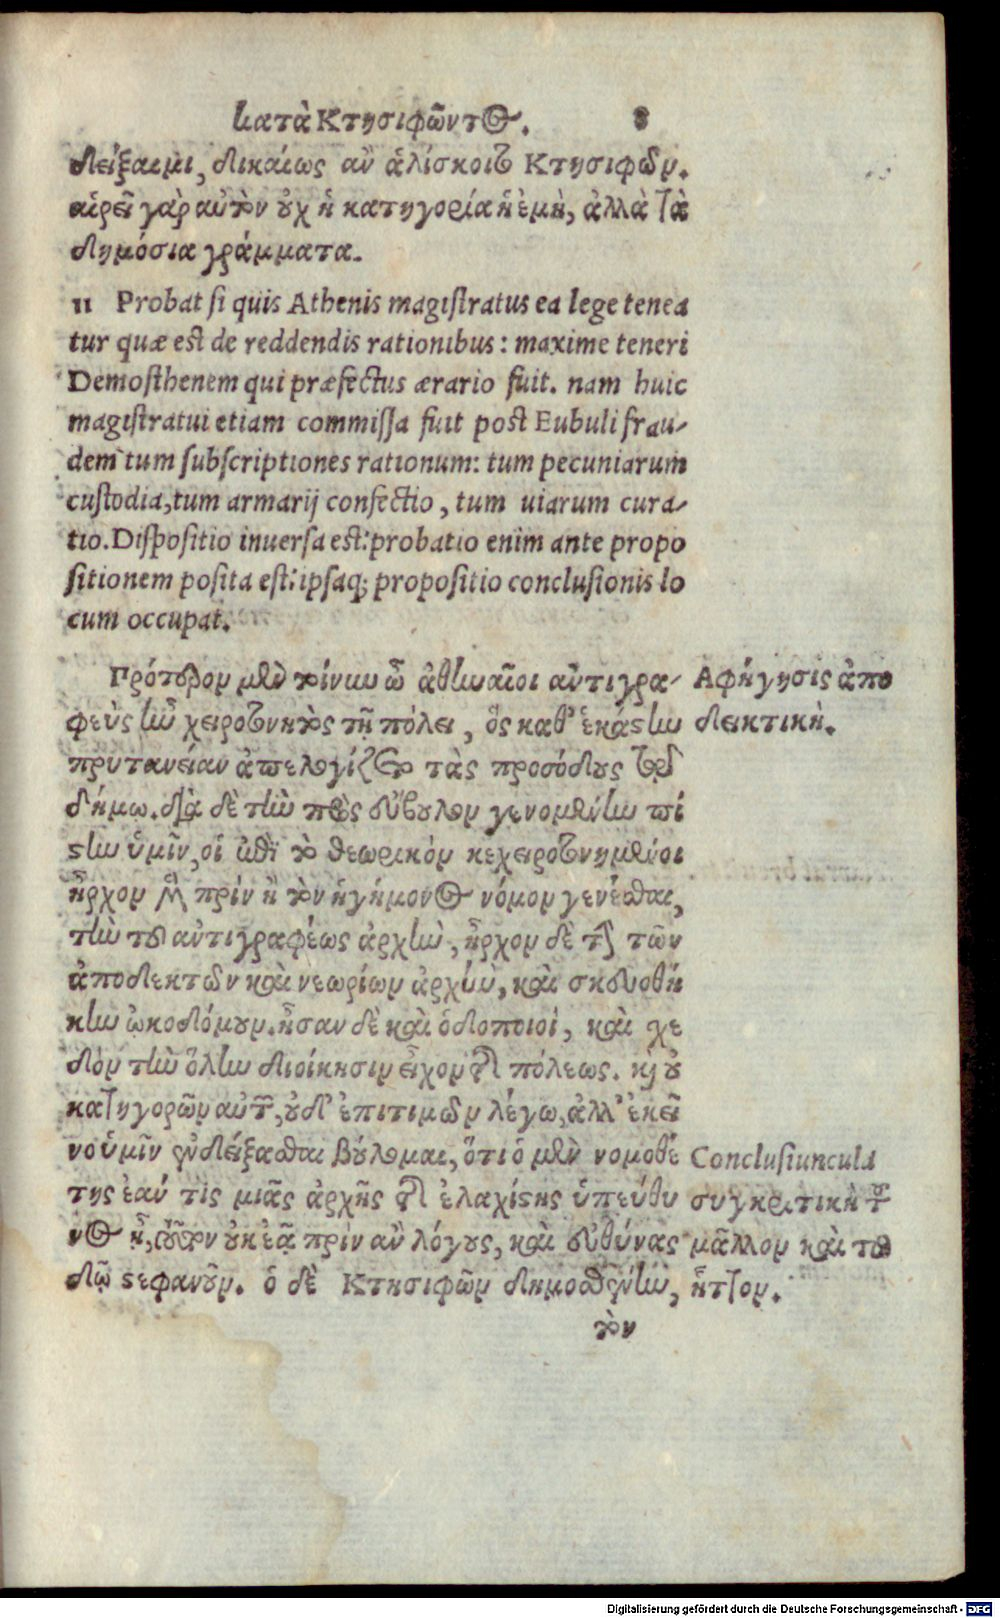 κατὰ Κτησιφῶντος. 8
δείξαιμι, δικαίως ἂν ἁλίσκοιτο Κτησιφῶν.
αἱρεῖ γὰρ αὐτὸν οὐχ ἡ κατηγορία ἡ ἐμὴ, ἀλλὰ τὰ
δημόσια γράμματα.
11 Probat si quis Athenis magistratus ea lege tenea
tur quæ est de reddendis rationibus: maxime teneri
Demosthenem qui præfectus ærario fuit. nam huic
magistratui etiam commissa fuit post Eubuli frau-
dem tum subscriptiones rationum: tum pecuniarum
custodia, tum armarij confectio, tum uiarum cura-
tio. Dispositio inuersa est: probatio enim ante propo
sitionem posita est: ipsaq; propositio conclusionis lo
cum occupat.
Πρότερον μὲν τοίνυν ὦ ἀθηναῖοι ἀντιγρα-
φεὺς ἦν χειροτονητὸς τῇ πόλει, ὃς καθ' ἑκάστην
πρυτανείαν ἀπελογίζετο τὰς προσόδους τῷ
δήμῳ. διὰ δὲ τὴν πρὸς εὔβουλον γενομένην πί
στιν ὑμῖν, οἱ ἐπὶ τὸ θεωρικὸν κεχειροτονημένοι
ἦρχον μὲν πρὶν ἢ τὸν ἡγήμονος νόμον γενέσθαι,
τὴν τοῦ ἀντιγραφέως ἀρχὴν, ἦρχον δὲ τὴν τῶν
ἀποδεκτῶν καὶ νεωρίων ἀρχὴν, καὶ σκευοθή
κην ᾠκοδόμουν. ἦσαν δὲ καὶ ὁδοποιοὶ, καὶ σχε
δὸν τὴν ὅλην διοίκησιν εἶχον τῆς πόλεως. καὶ οὐ
κατηγορῶν αὐτῶν, οὐδ' ἐπιτιμῶν λέγω, ἀλλ' ἐκεῖ
νο ὑμῖν ἐνδείξασθαι βούλομαι, ὅτι ὁ μὲν νομοθέ
της ἐάν τις μιᾶς ἀρχῆς τῆς ἐλαχίστης ὑπεύθυ
νος ᾖ, τοῦτον οὐκ ἐᾷ πρὶν ἂν λόγους, καὶ εὐθύνας
δῷ στεφανοῦν. ὁ δὲ Κτησιφῶν δημοσθένην,
τὸν
Ἀφήγησις ἀπο
δεικτικὴ.
Conclusiuncula
συγκριτικὴ τοῦ
μᾶλλον καὶ τοῦ
ἧττον.
Digitalisierung gefördert durch die Deutsche Forschungsgemeinschaft - DFG